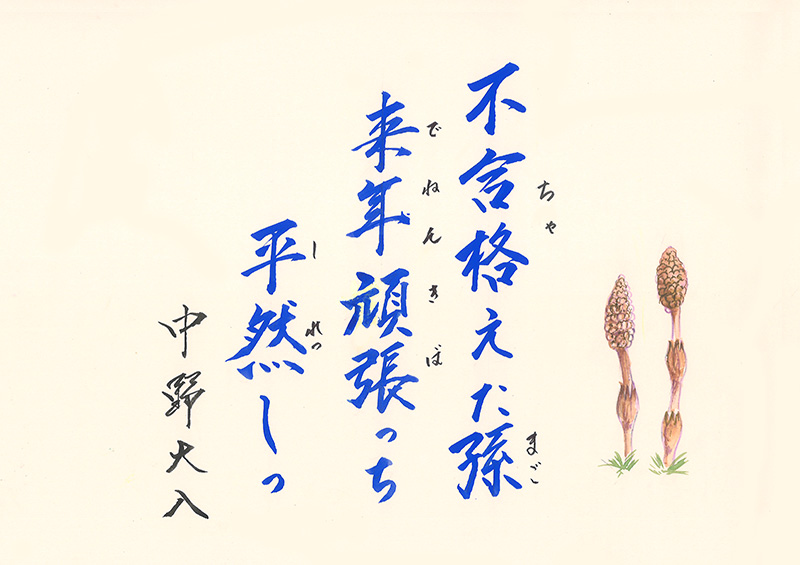 不合格えた孫
ちゃ
まご
来年頑張っち
でねん
きば
平然しっ
しれっ
中野大八